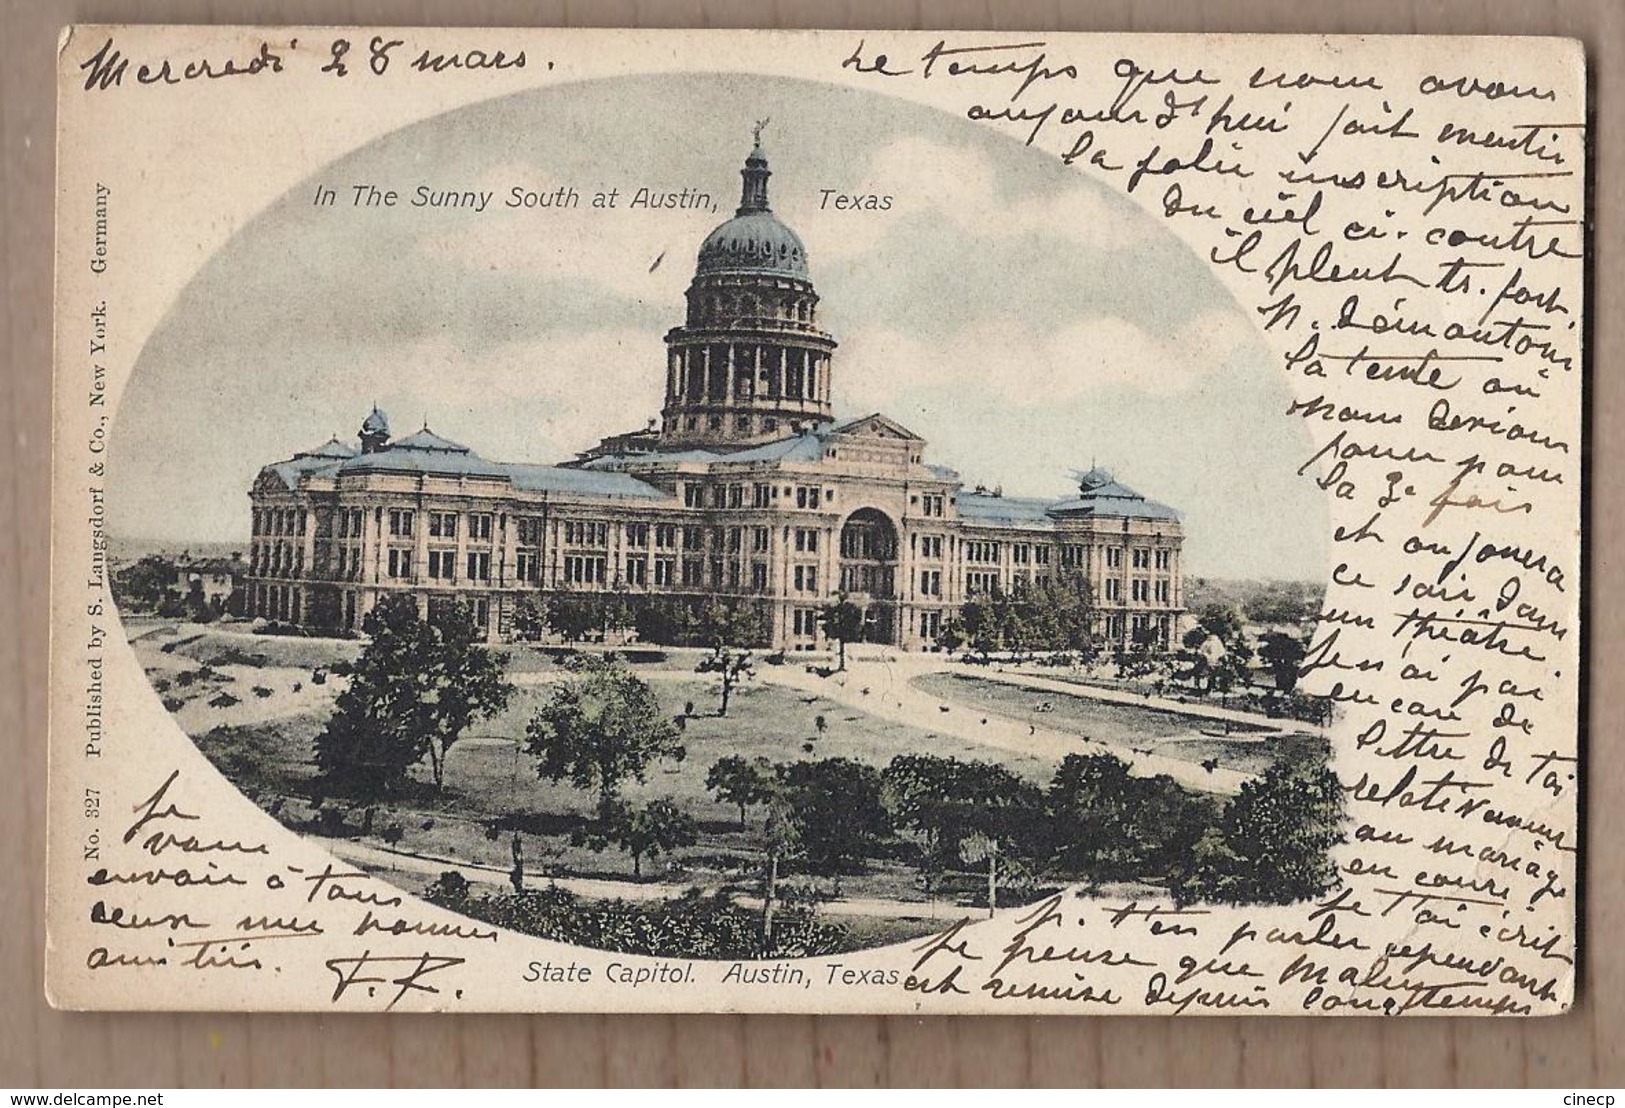 Mercredi 28 mars.
Le temps que nous avons
aujourd'hui fait mentir
la jolie inscription
du ciel ci-contre
il pleut tr. fort.
n. démontons
la tente où
nous devions
jouer pour
la 3e fois
et on jouera
ce soir dans
un théâtre.
Je n'ai pas
encore de
lettre de toi
relativement
au mariage
en cours
Je t'ai écrit
p. t'en parler cependant.
Je pense que Malu
est remise depuis longtemps
Je
vous
envoie à tous
ceux mes bonnes
amitiés. F. R.
In The Sunny South at Austin, Texas
State Capitol. Austin, Texas
No. 327 Published by S. Langsdorf & Co., New York. Germany
delcampe.net
cinecp